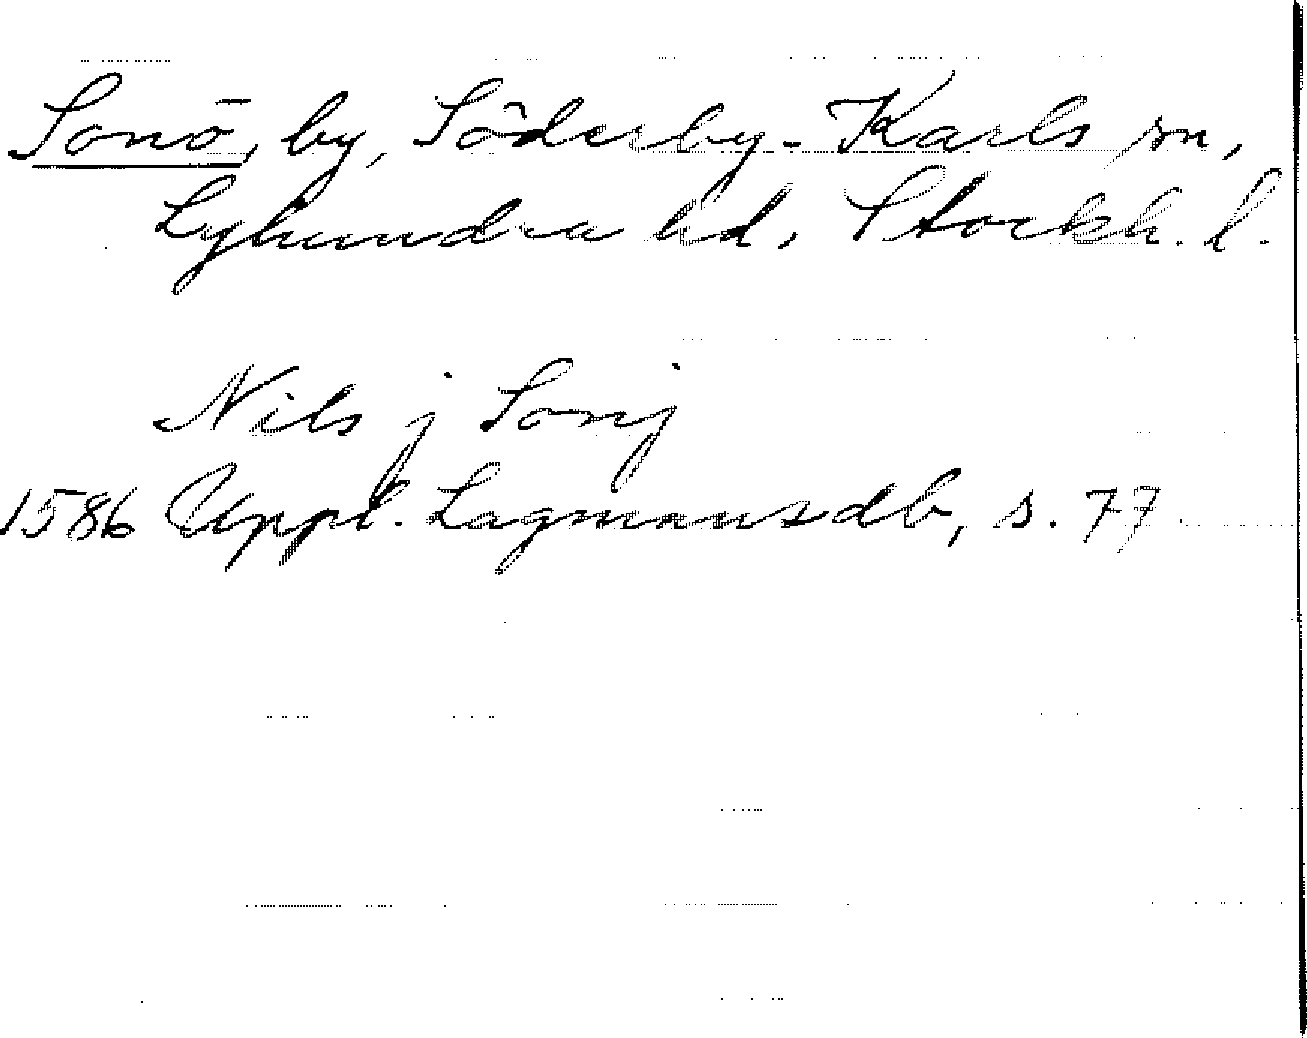 Sonö, by, Söderby-Karls sn,
Lyhundra hd, Stockh. l.
Nils j Sonj
1586 Uppl. Lagmansdb, s. 77